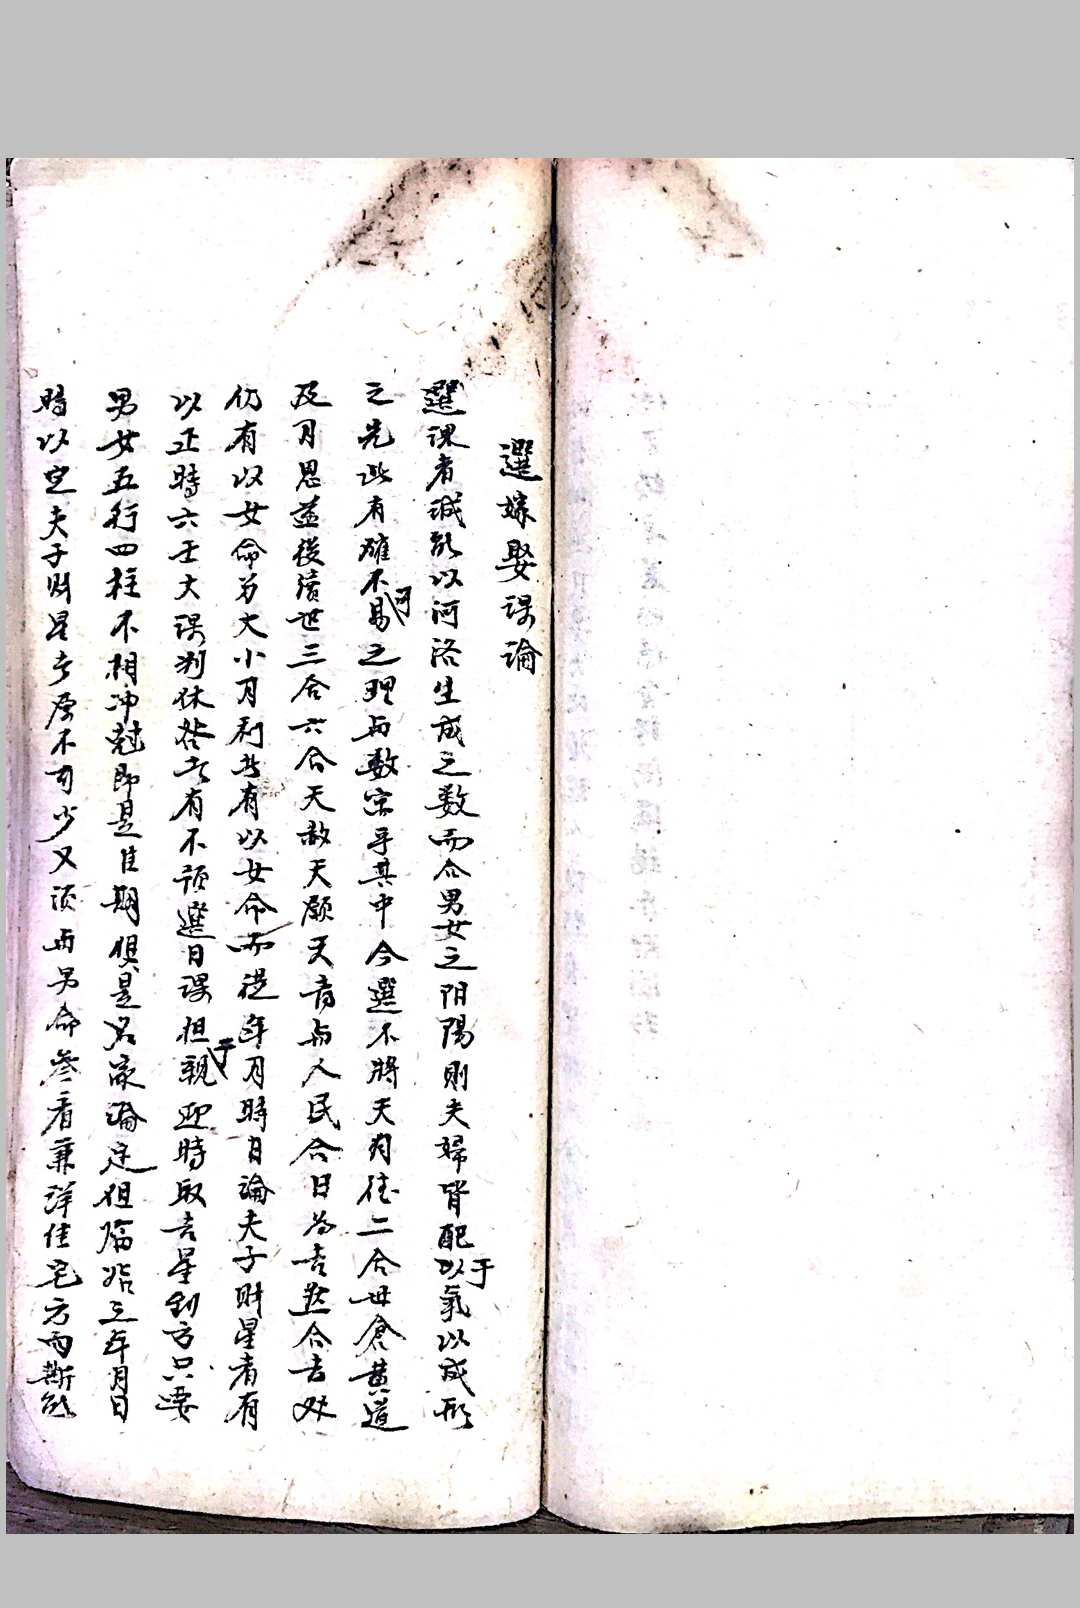 選嫁娶课論
選课者誠能以河洛生成之数而合男女之阴陽則夫婦皆配以于氣以成形
之先此有確不可易之理与数宗乎其中今選不將天月德二合母倉黄道
及月恩益後續世三合六合天赦天願天喜与人民合日為吉然合吉处
仍有以女命为大小月利者有以女命而從年月時日論夫子财星者有
以正時六壬大课判休咎者有不預選日课但于親迎時取吉星到方只要
男女五行四柱不相冲尅即是佳期俱是名家論定但臨婚之年月日
時以定夫子财星者原不可少又須与男命參看兼詳住宅方向斯能